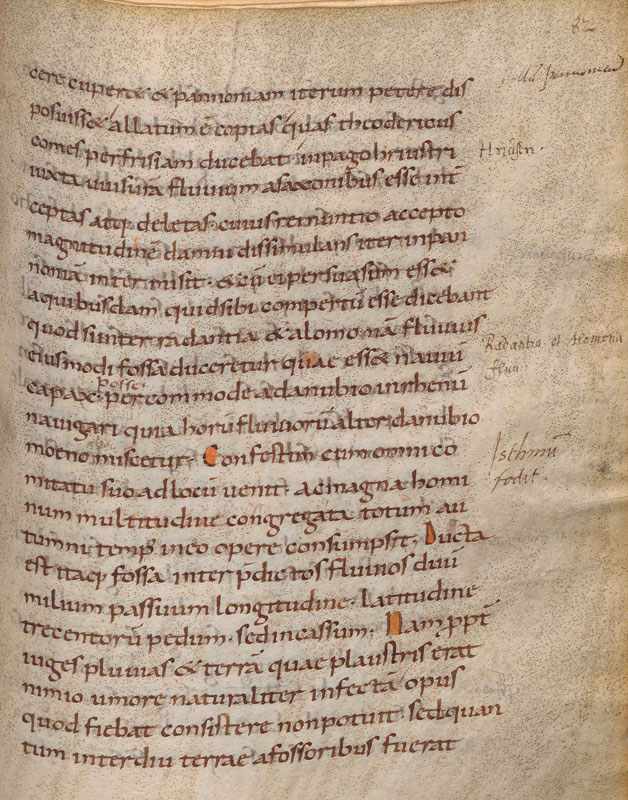 82
cere cuperet & pannoniam iterum petere dis
posuisset allatum ē copias quas theodericus
comes per frisiam ducebat in pago hriustri
iuxta uuisurā fluuium a saxonibus esse int
ceptas atq; deletas. cuius rei nuntio accepto
magnitudinē damni dissimulans iter in pan
noniā intermisit. & cū ei persuasum esset
a quibusdam qui id sibi compertū esse dicebant
quod si inter radantia & alomonā fluuius
eiusmodi fossa duceretur quae esset nauiū
capax. posse percommode a danubio in rhenū
nauigari quia horū fluuiorū alter danubio
moeno miscetur. Confestim cum omni co
mitatu suo ad locū uenit. ac magna homi
num multitudine congregata totum au
tumni temp' in eo opere consumpsit. Ducta
est itaq; fossa inter p̄dictos fluuios duū
milium passuum longitudine. latitudine
trecentorū pedum. sed in cassum. Nam ꝓpt̄
iuges pluuias & terrā quae plaustris erat
nimio umore naturaliter infectā opus
quod fiebat consistere non potuit. sed quan
tum interdiu terrae a fossoribus fuerat
Hriustri.
Radantia et Alomona
fluu.
Isthmū
fodit.